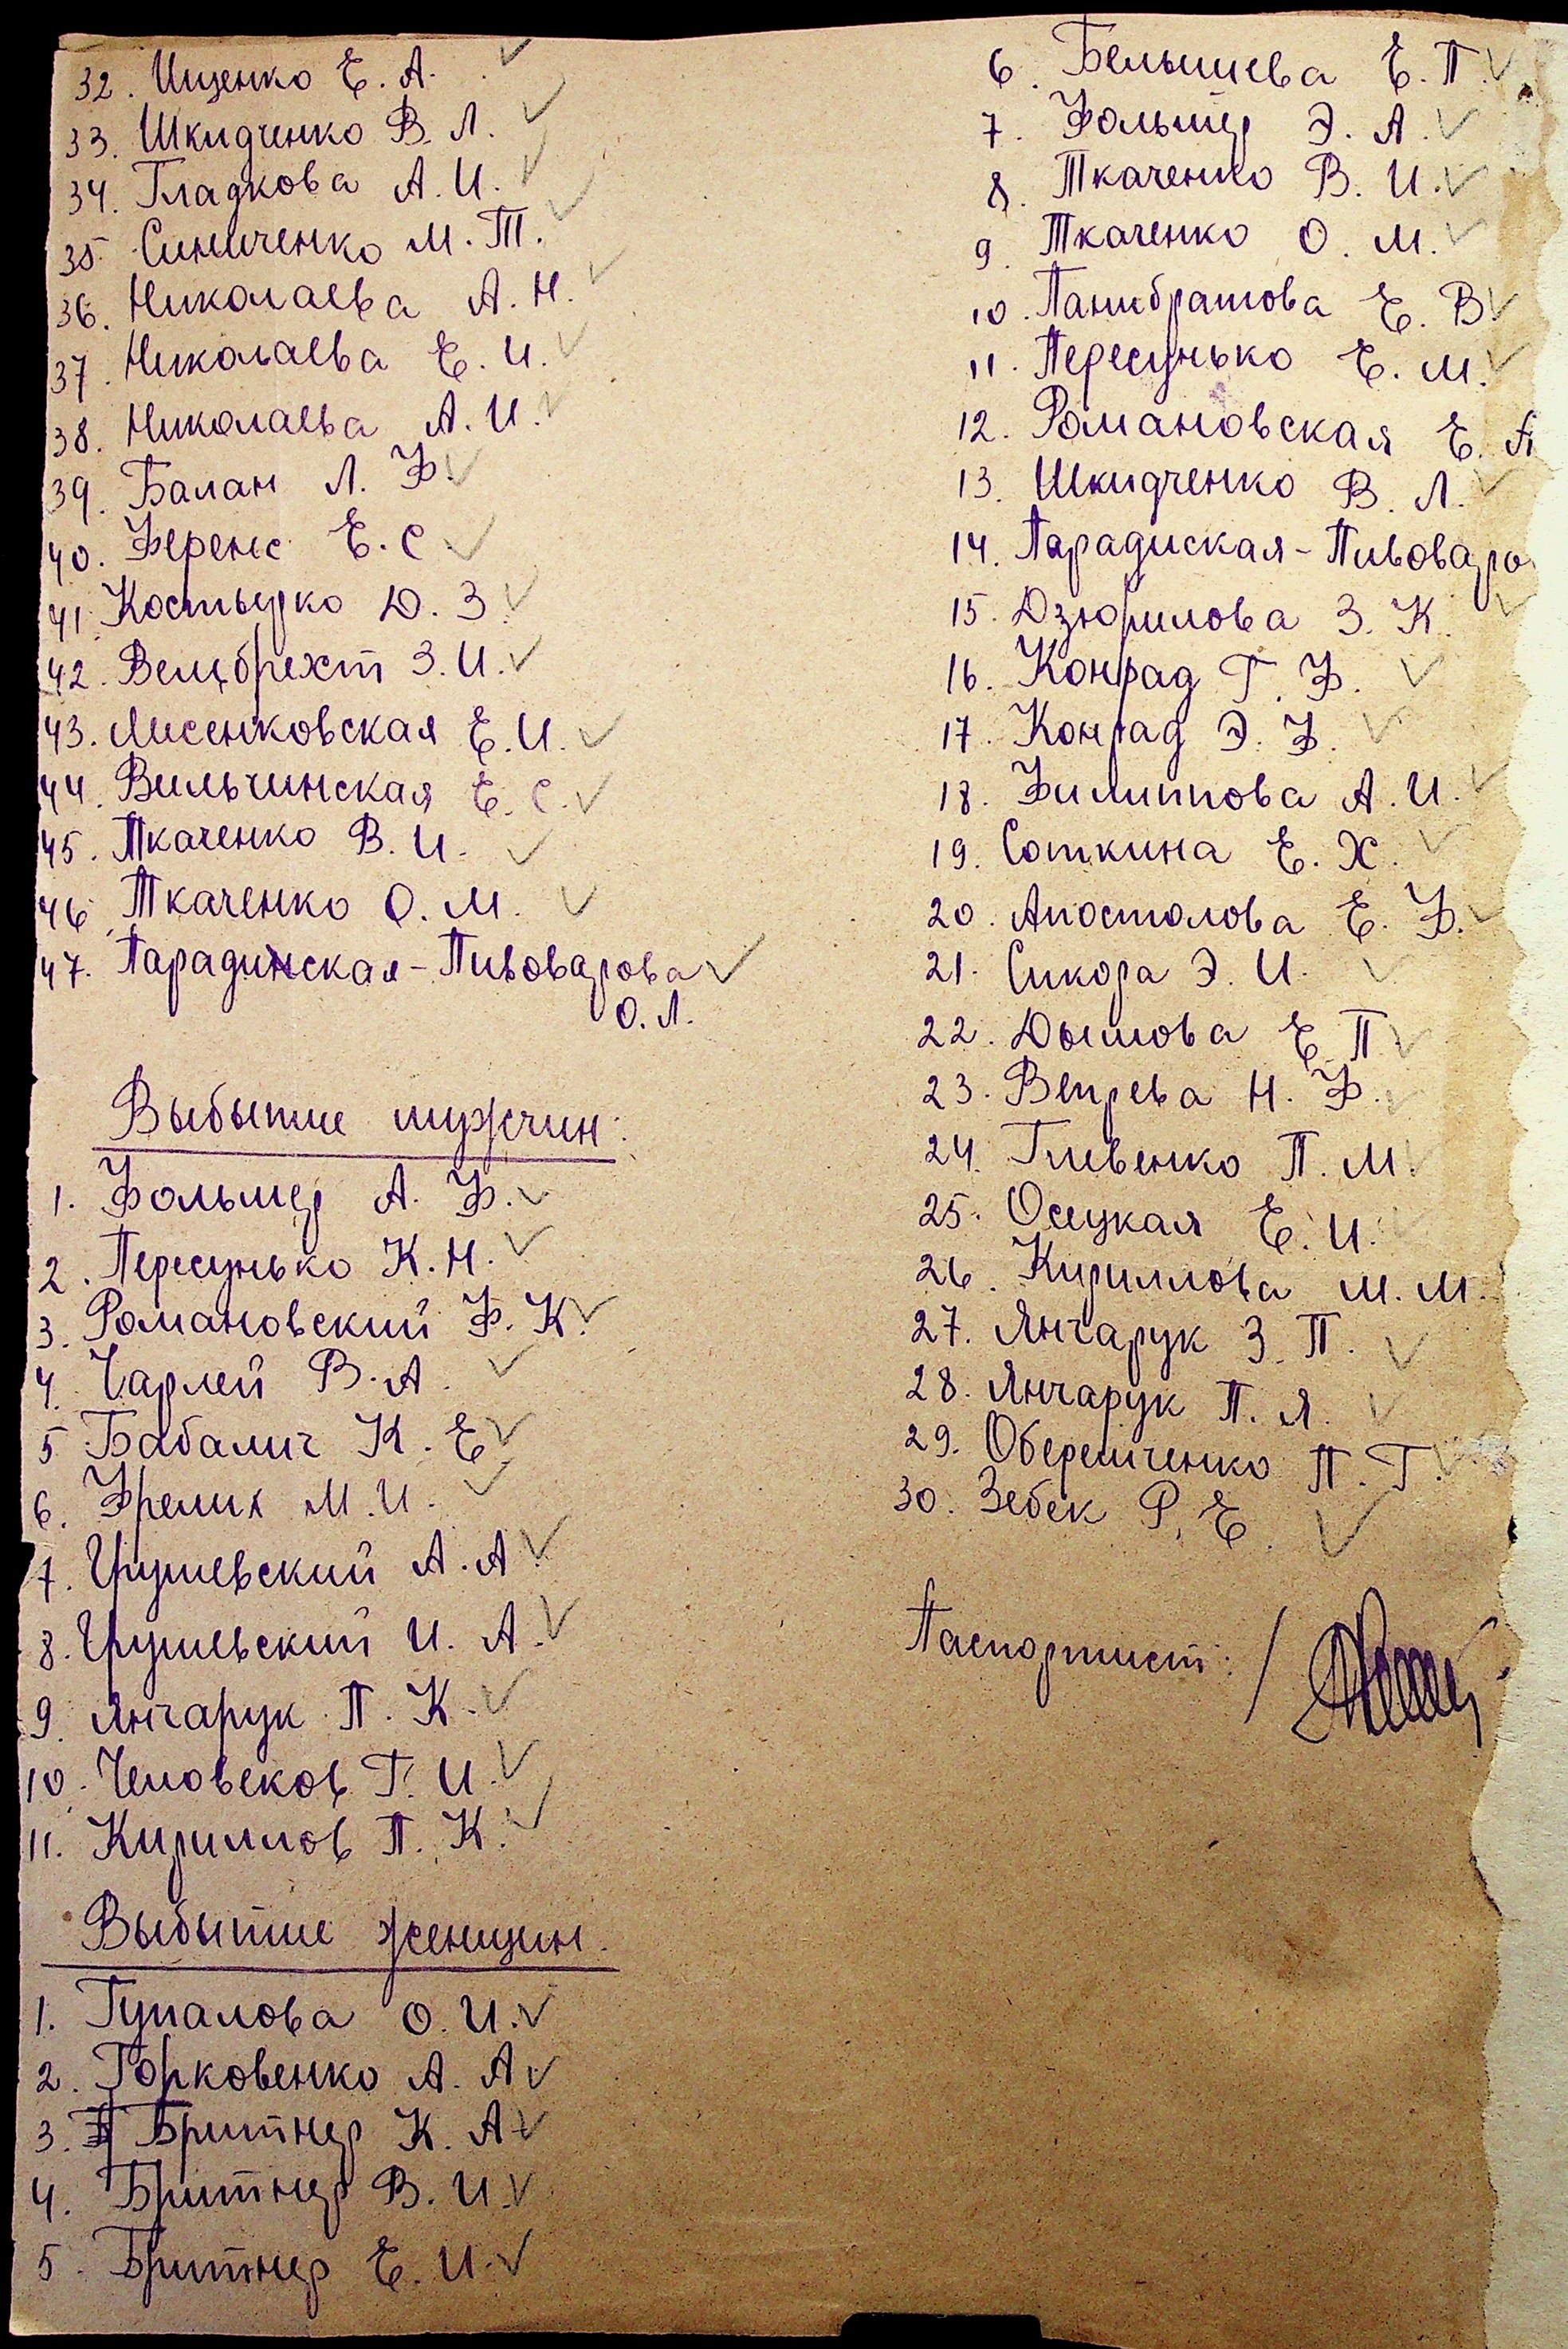 32. Ищенко Е. А.
33. Шкидченко В. Л.
34. Гладкова А. И.
35. Синиченко М. Т.
36. Николаева А. Н.
37. Николаева Е. И.
38. Николаева А. И.
39. Балан Л. Ф.
40. Ференс Е. С.
41. Костырко Д. З.
42. Вельбрехт З. И.
43. Лисенковская Е. И.
44. Вильчинская Е. С.
45. Ткаченко В. И.
46. Ткаченко О. М.
47. Парадинская-Пивоварова
О. Л.
Выбытие мужчин:
1. Фольмер А. Ф.
2. Пересунько К. Н.
3. Романовский Ф. К.
4. Чарлей В. А.
5. Бабалич К. Е.
6. Фрелих М. И.
7. Грушевский А. А.
8. Грушевский И. А.
9. Янчарук П. К.
10. Человеков Г. И.
11. Кириллов П. К.
Выбытие женщин.
1. Гупалова О. И.
2. Горковенко А. А.
3. Бритнер К. А.
4. Бритнер В. И.
5. Бритнер Е. И.
6. Белышева Е. П.
7. Фольмер Э. А.
8. Ткаченко В. И.
9. Ткаченко О. М.
10. Панибратова Е. В.
11. Пересунько Е. М.
12. Романовская Е. А
13. Шкидченко В. Л.
14. Парадиская-Пивоваро
15. Дзюрилова З. К.
16. Конрад Г. Ф.
17. Конрад Э. Ф.
18. Филиппова А. И.
19. Соткина Е. Х.
20. Апостолова Е. Ф.
21. Сикора Э. И.
22. Дымова Е. П.
23. Вепрева Н. Ф.
24. Гливенко П. М.
25. Осецкая Е. И.
26. Кириллова М. М.
27. Янчарук З. П.
28. Янчарук П. Я.
29. Оберемченко П. Г.
30. Зебек Р. Е.
Паспортист: /